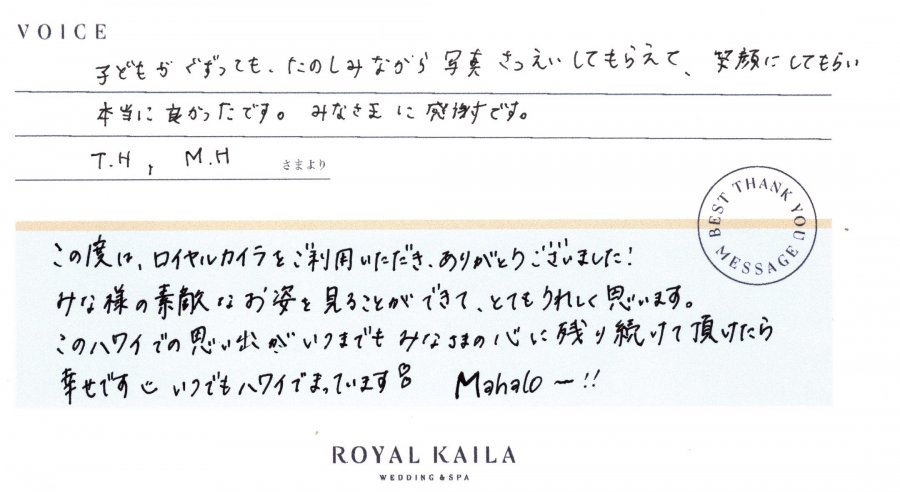 VOICE
子どもがぐずっても、たのしみながら写真さつえいしてもらえて、笑顔にしてもらい
本当に良かったです。みなさまに感謝です。
T.H, M.H さまより
BEST THANK YOU MESSAGE
この度は、ロイヤルカイラをご利用いただき、ありがとうございました!
みな様の素敵なお姿を見ることができて、とてもうれしく思います。
このハワイでの思い出がいつまでもみなさまの心に残り続けて頂けたら
幸せです いつでもハワイでまっています Mahalo〜!!
ROYAL KAILA
WEDDING & SPA